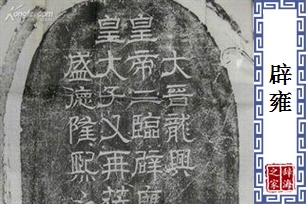 大晉龍興
皇帝三臨辟廱
皇大子又再莅
盛德隆熙
辟雍
辞海之家
Kongfz.com